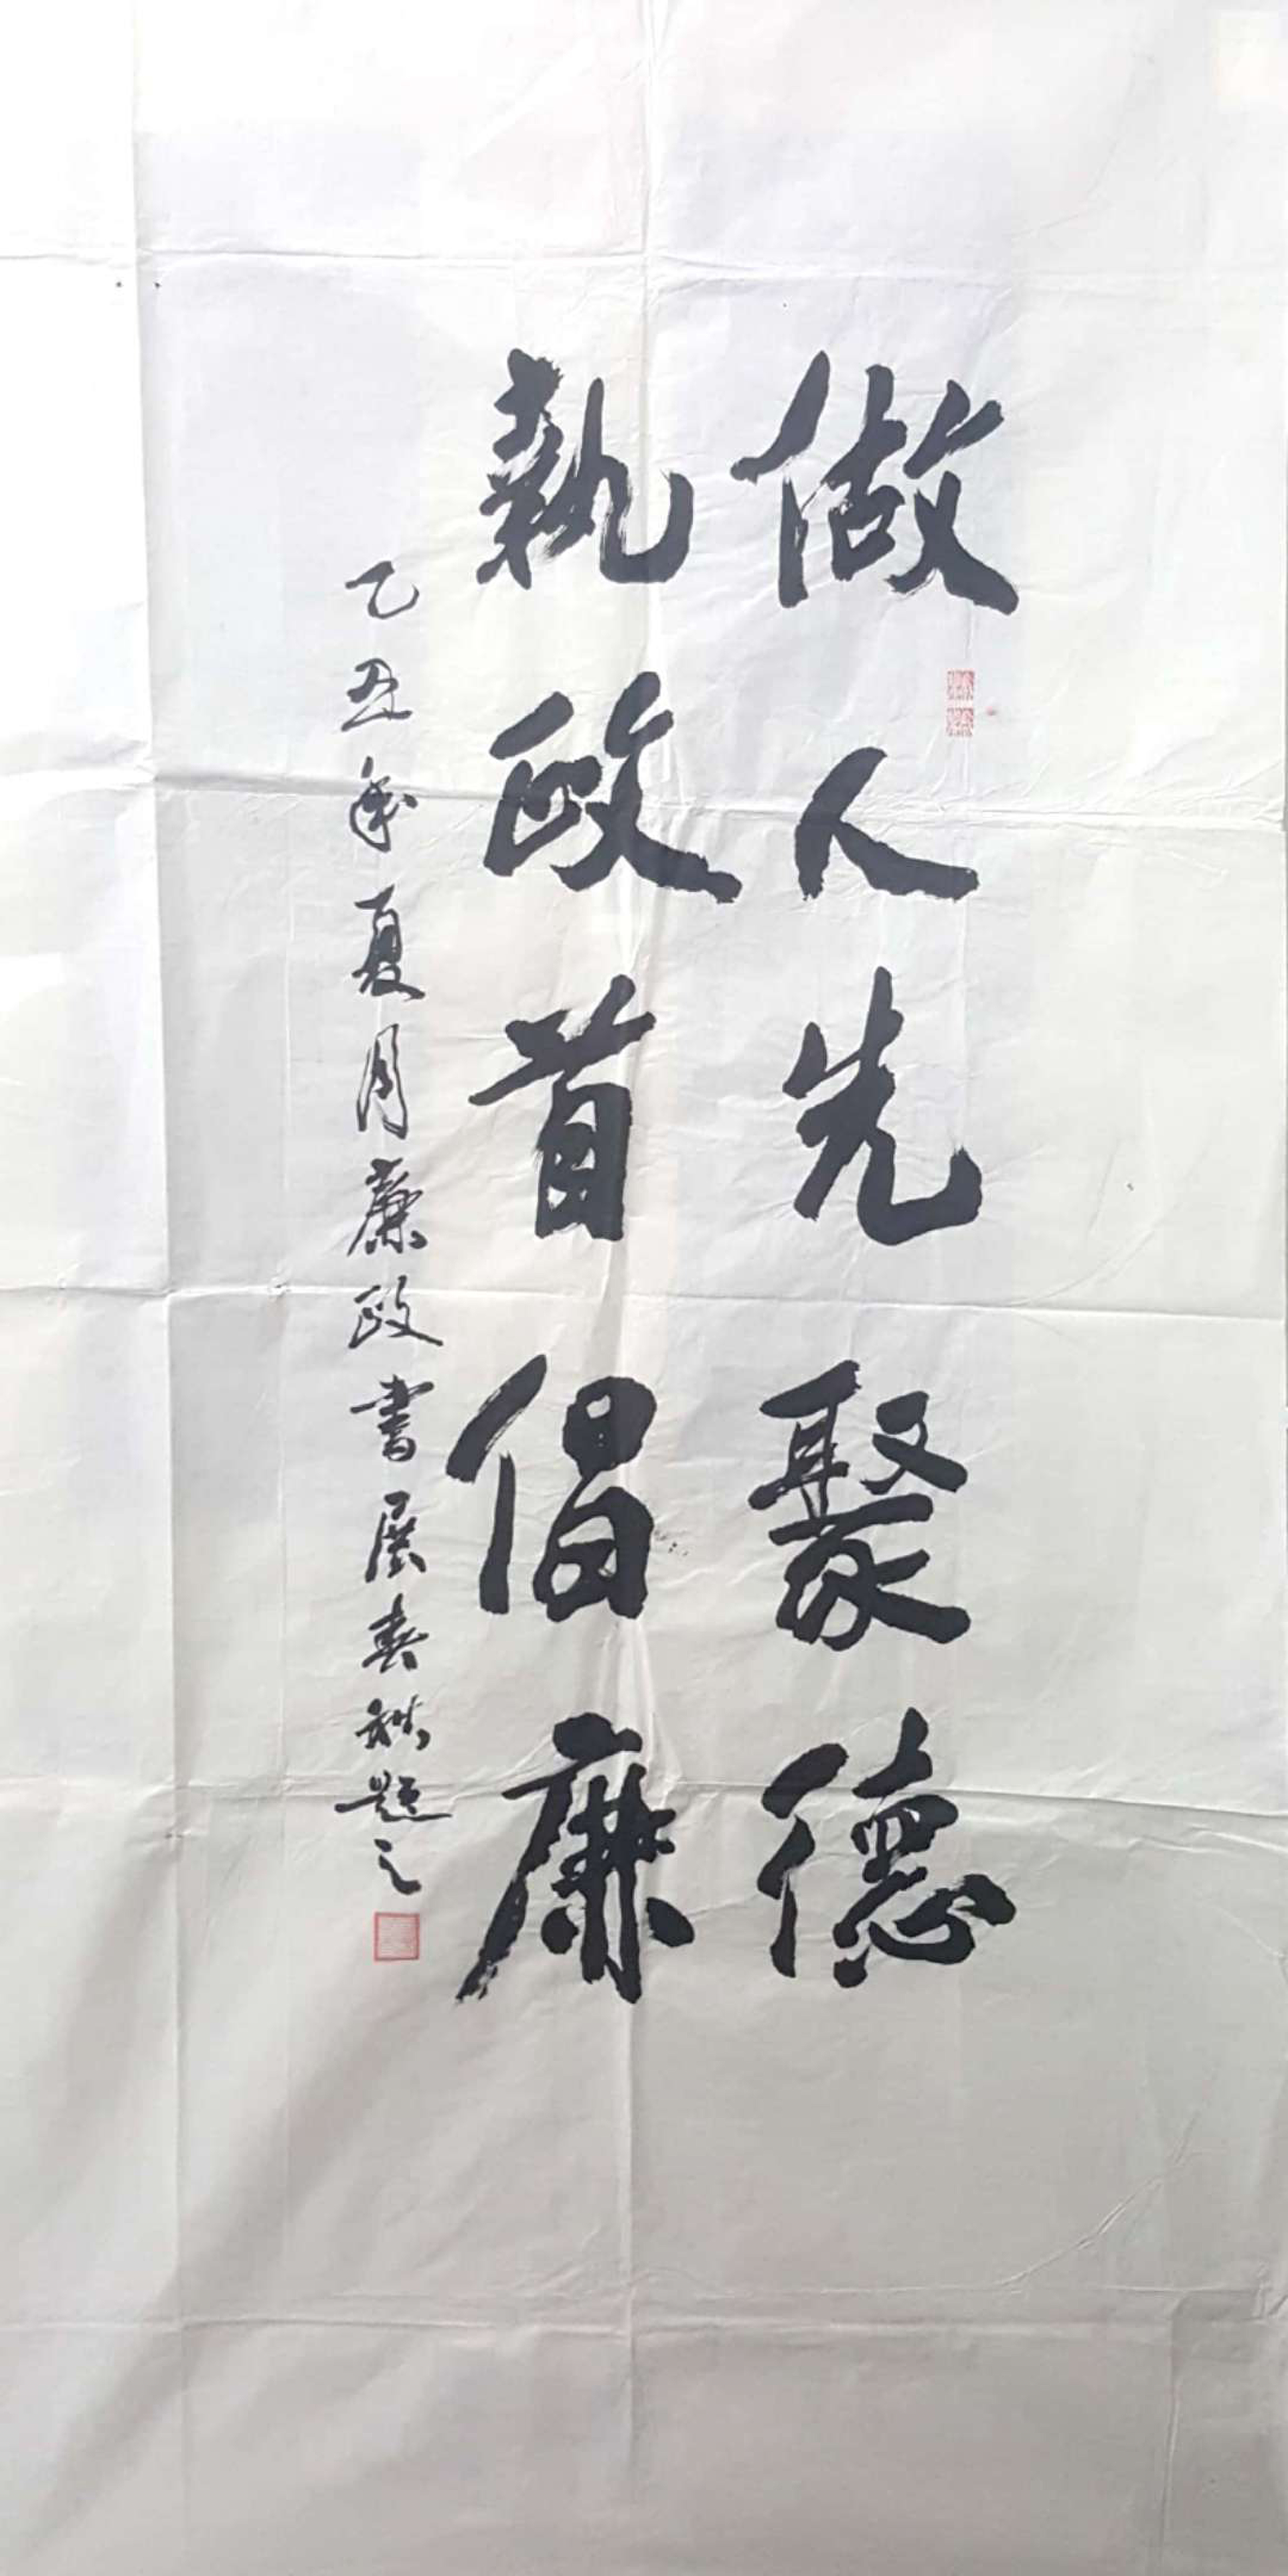 做人先聚德
執政首倡廉
乙丑年夏月廉政書展春秋題之